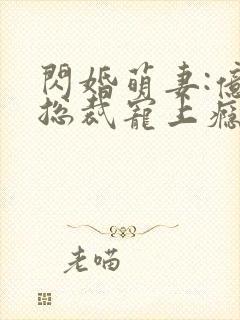 閃婚萌妻:億
總裁寵上癮
老喵